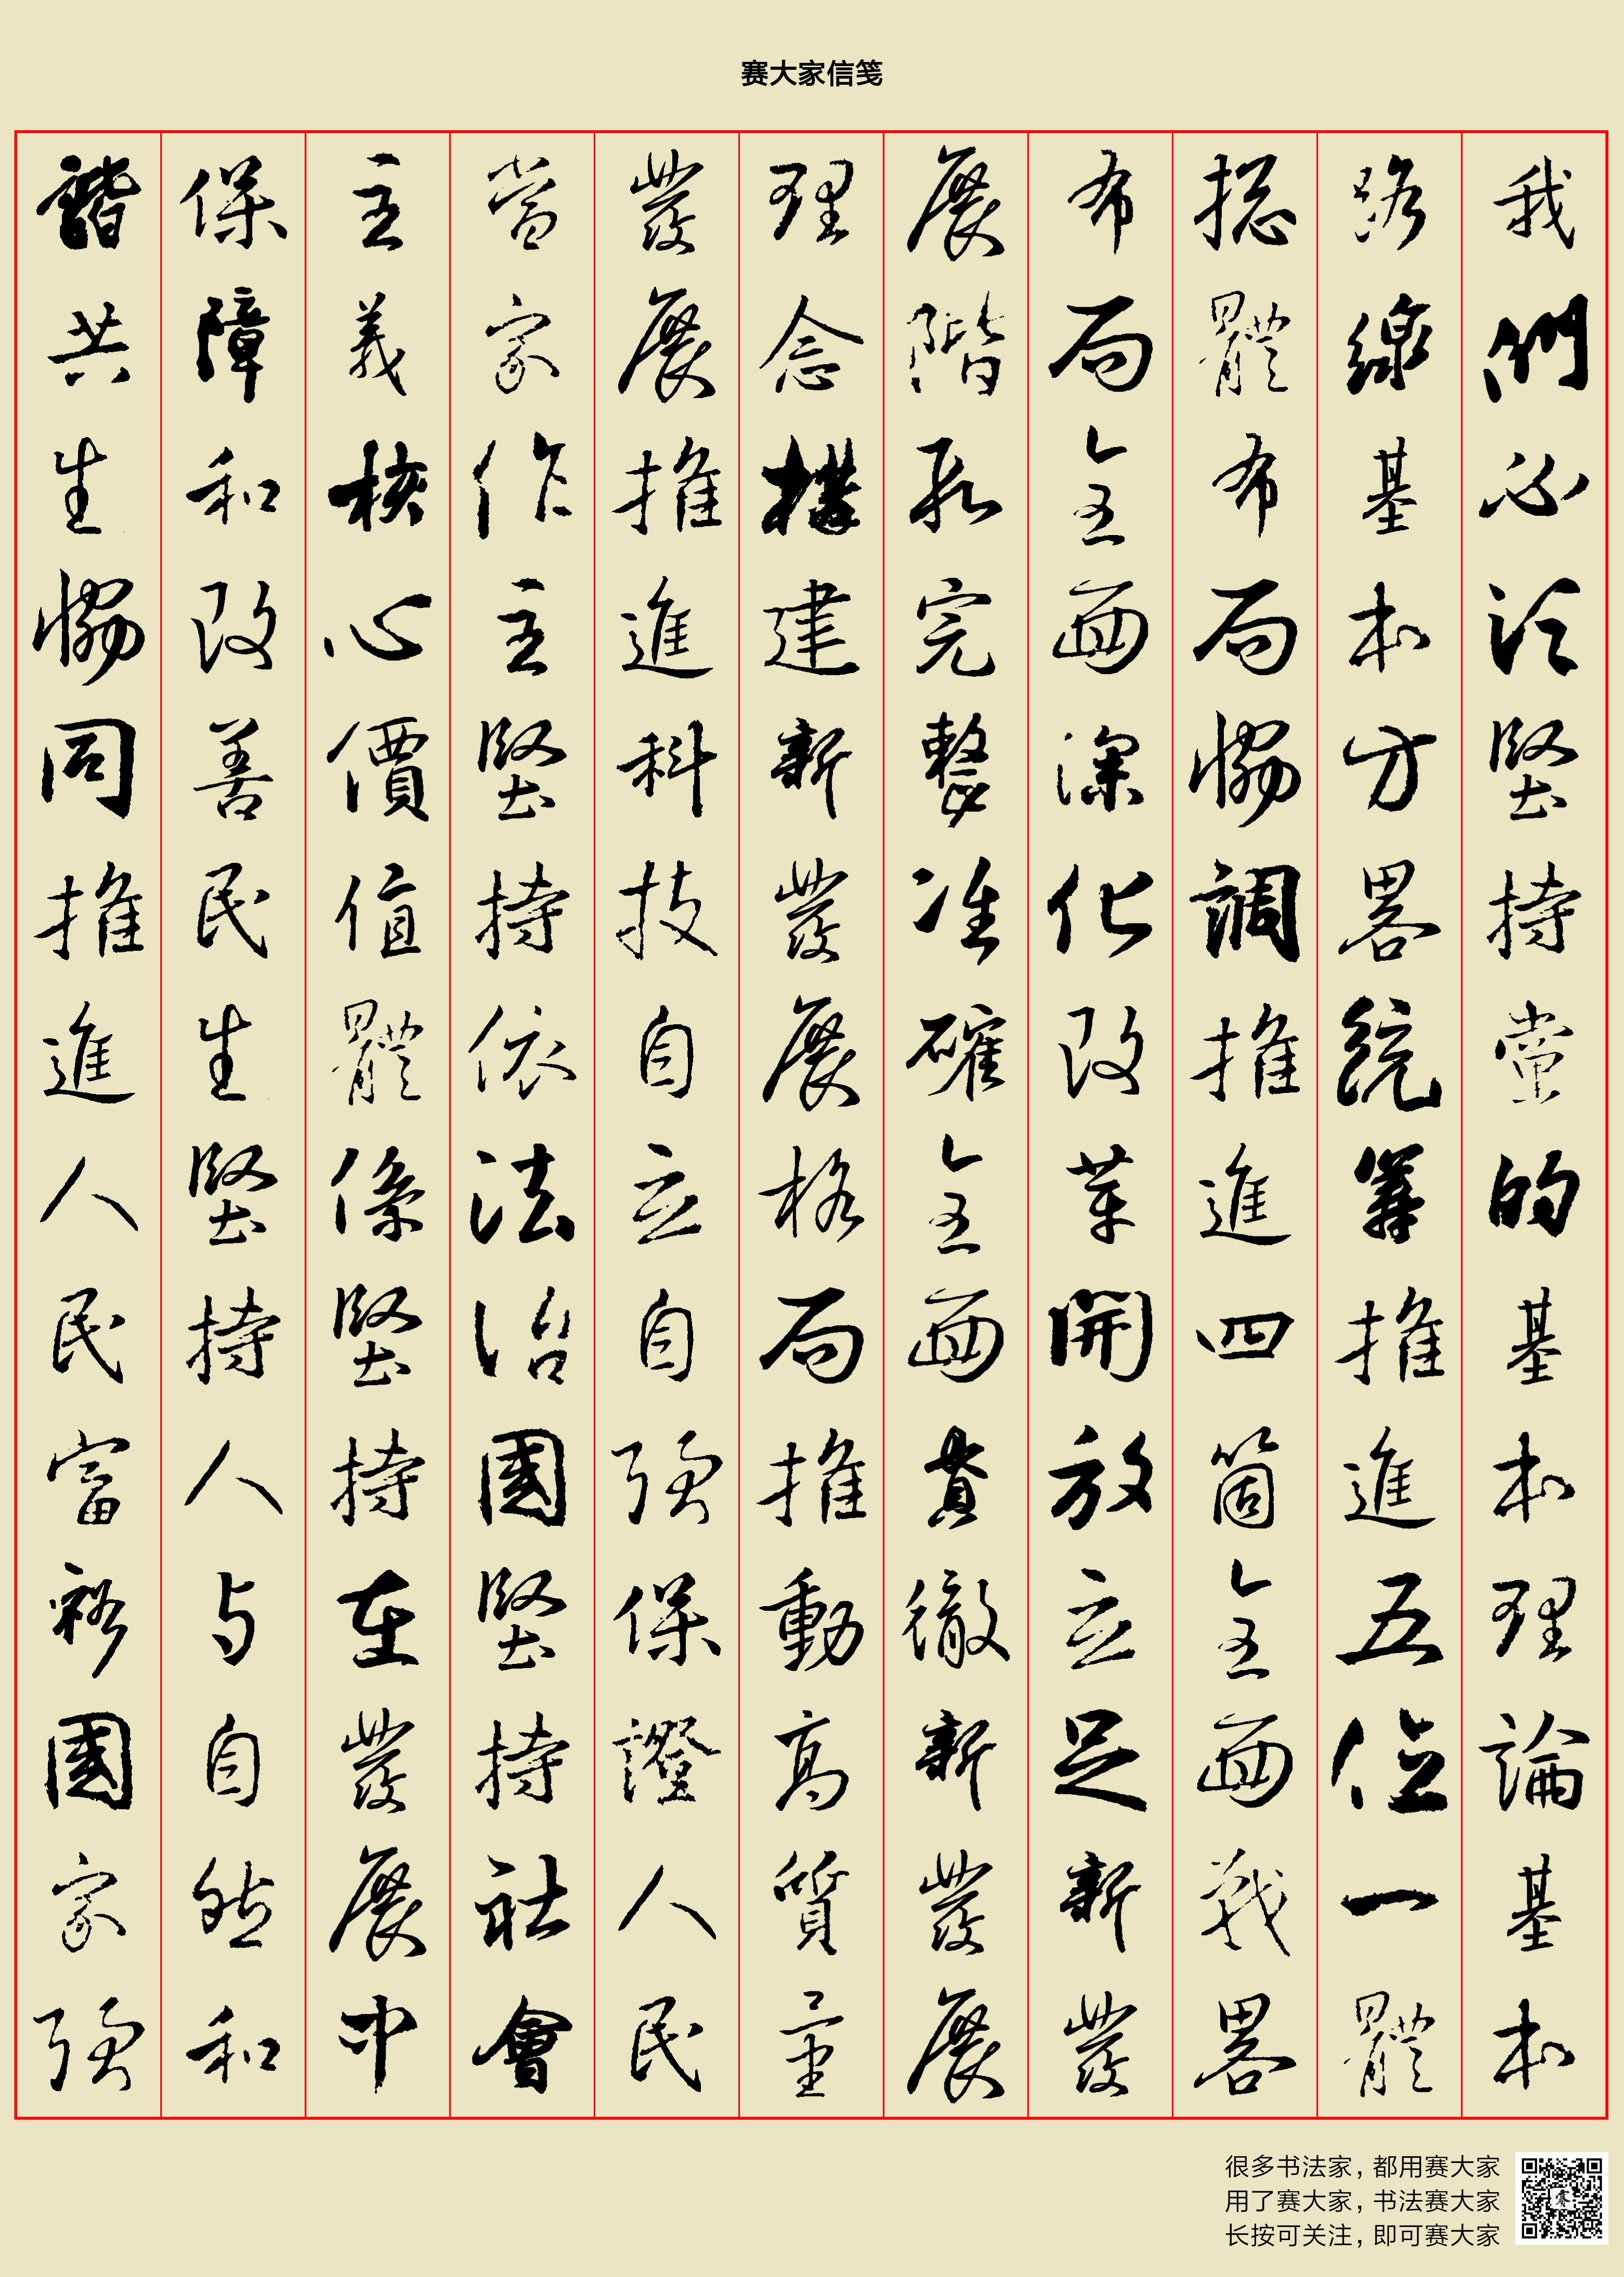 赛大家信笺
我們必須堅持黨的基本理論基本
路線基本方畧統籌推進五位一體
總體布局協調推進四箇全面戰畧
布局全面深化改革開放立足新發
展階段完整准確全面貫徹新發展
理念構建新發展格局推動高質量
發展推進科技自立自強保證人民
當家作主堅持依法治國堅持社會
主義核心價值體係堅持在發展中
保障和改善民生堅持人与自然和
諧共生協同推進人民富裕國家強
很多书法家，都用赛大家
用了赛大家，书法赛大家
长按可关注，即可赛大家